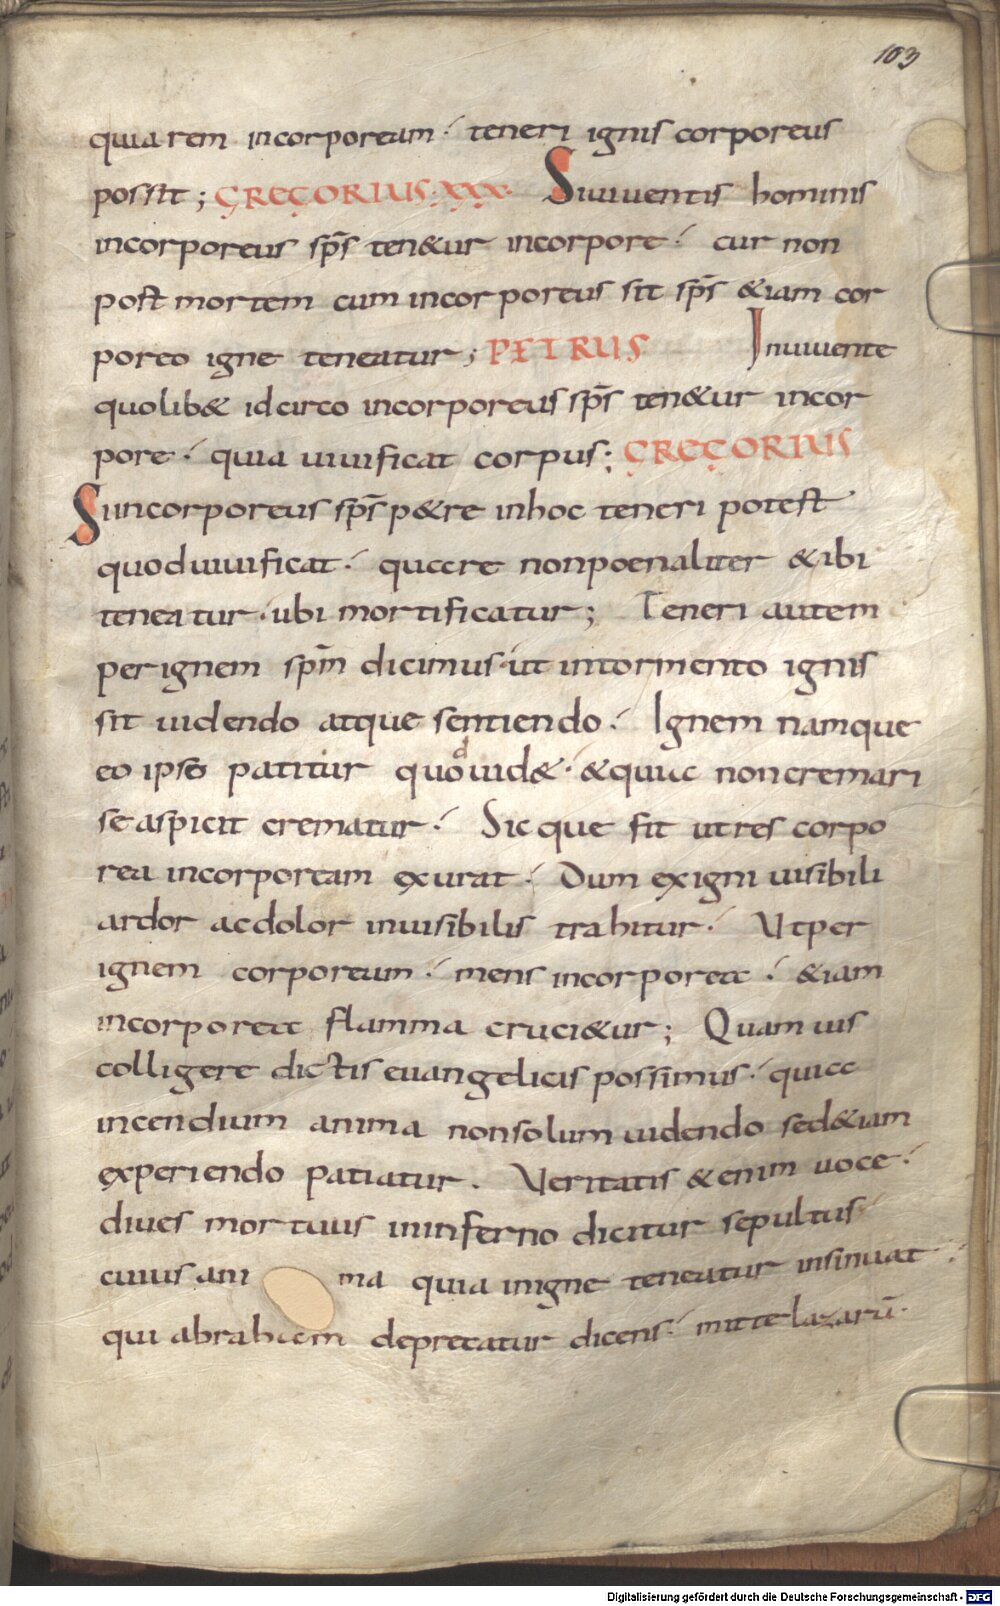 103
quia rem incorpoream· teneri ignis corporeus
possit; GREGORIUS·XXX· Siviventis hominis
incorporeus sp̄s ten&ur incorpore· cur non
post mortem cum incorporeus sit sp̄s &iam cor
poreo igne teneatur; PETRUS Inuiuente
quolib& idcirco incorporeus sp̄s ten&ur incor
pore· quia uiuificat corpus; GREGORIUS
Siincorporeus sp̄s p&re inhoc teneri potest
quod uiuificat· quare non poenaliter &ibi
teneatur·ubi mortificatur; Teneri autem
per ignem sp̄m dicimus·ut intormento ignis
sit uidendo atque sentiendo· Ignem namque
eo ipso patitur quod uid&· &quia non cremari
se aspicit crematur· Sicque fit ut res corpo
rea incorpoream exurat· Dum ex igni uisibili
ardor ac dolor inuisibilis trahitur· Ut per
ignem corporeum· mens incorporea· &iam
incorporea flamma cruci&ur; Quam uis
colligere dictis euangelicis possimus· quia
incendium anima non solum uidendo sed&iam
experiendo patiatur. Veritatis &enim uoce·
diues mortuus ininferno dicitur sepultus·
cuius ani ma quia inigne teneatur insinuat·
qui abraham deprecatur dicens· mitte lazarū·
Digitalisierung gefördert durch die Deutsche Forschungsgemeinschaft - DFG